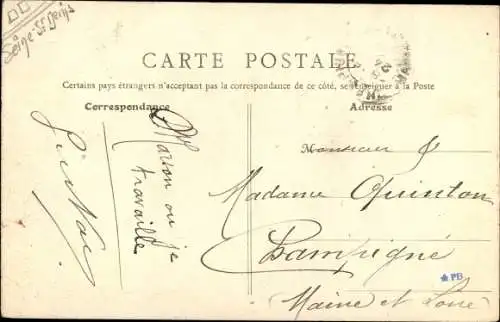 Seine St Denis
CARTE POSTALE
Certains pays étrangers n'acceptant pas la correspondance de ce côté, se renseigner à la Poste
Correspondance
Adresse
Maison ou je
travaille
Gustave
Monsieur &
Madame Quinton
Champigné
Maine et Loire
PB